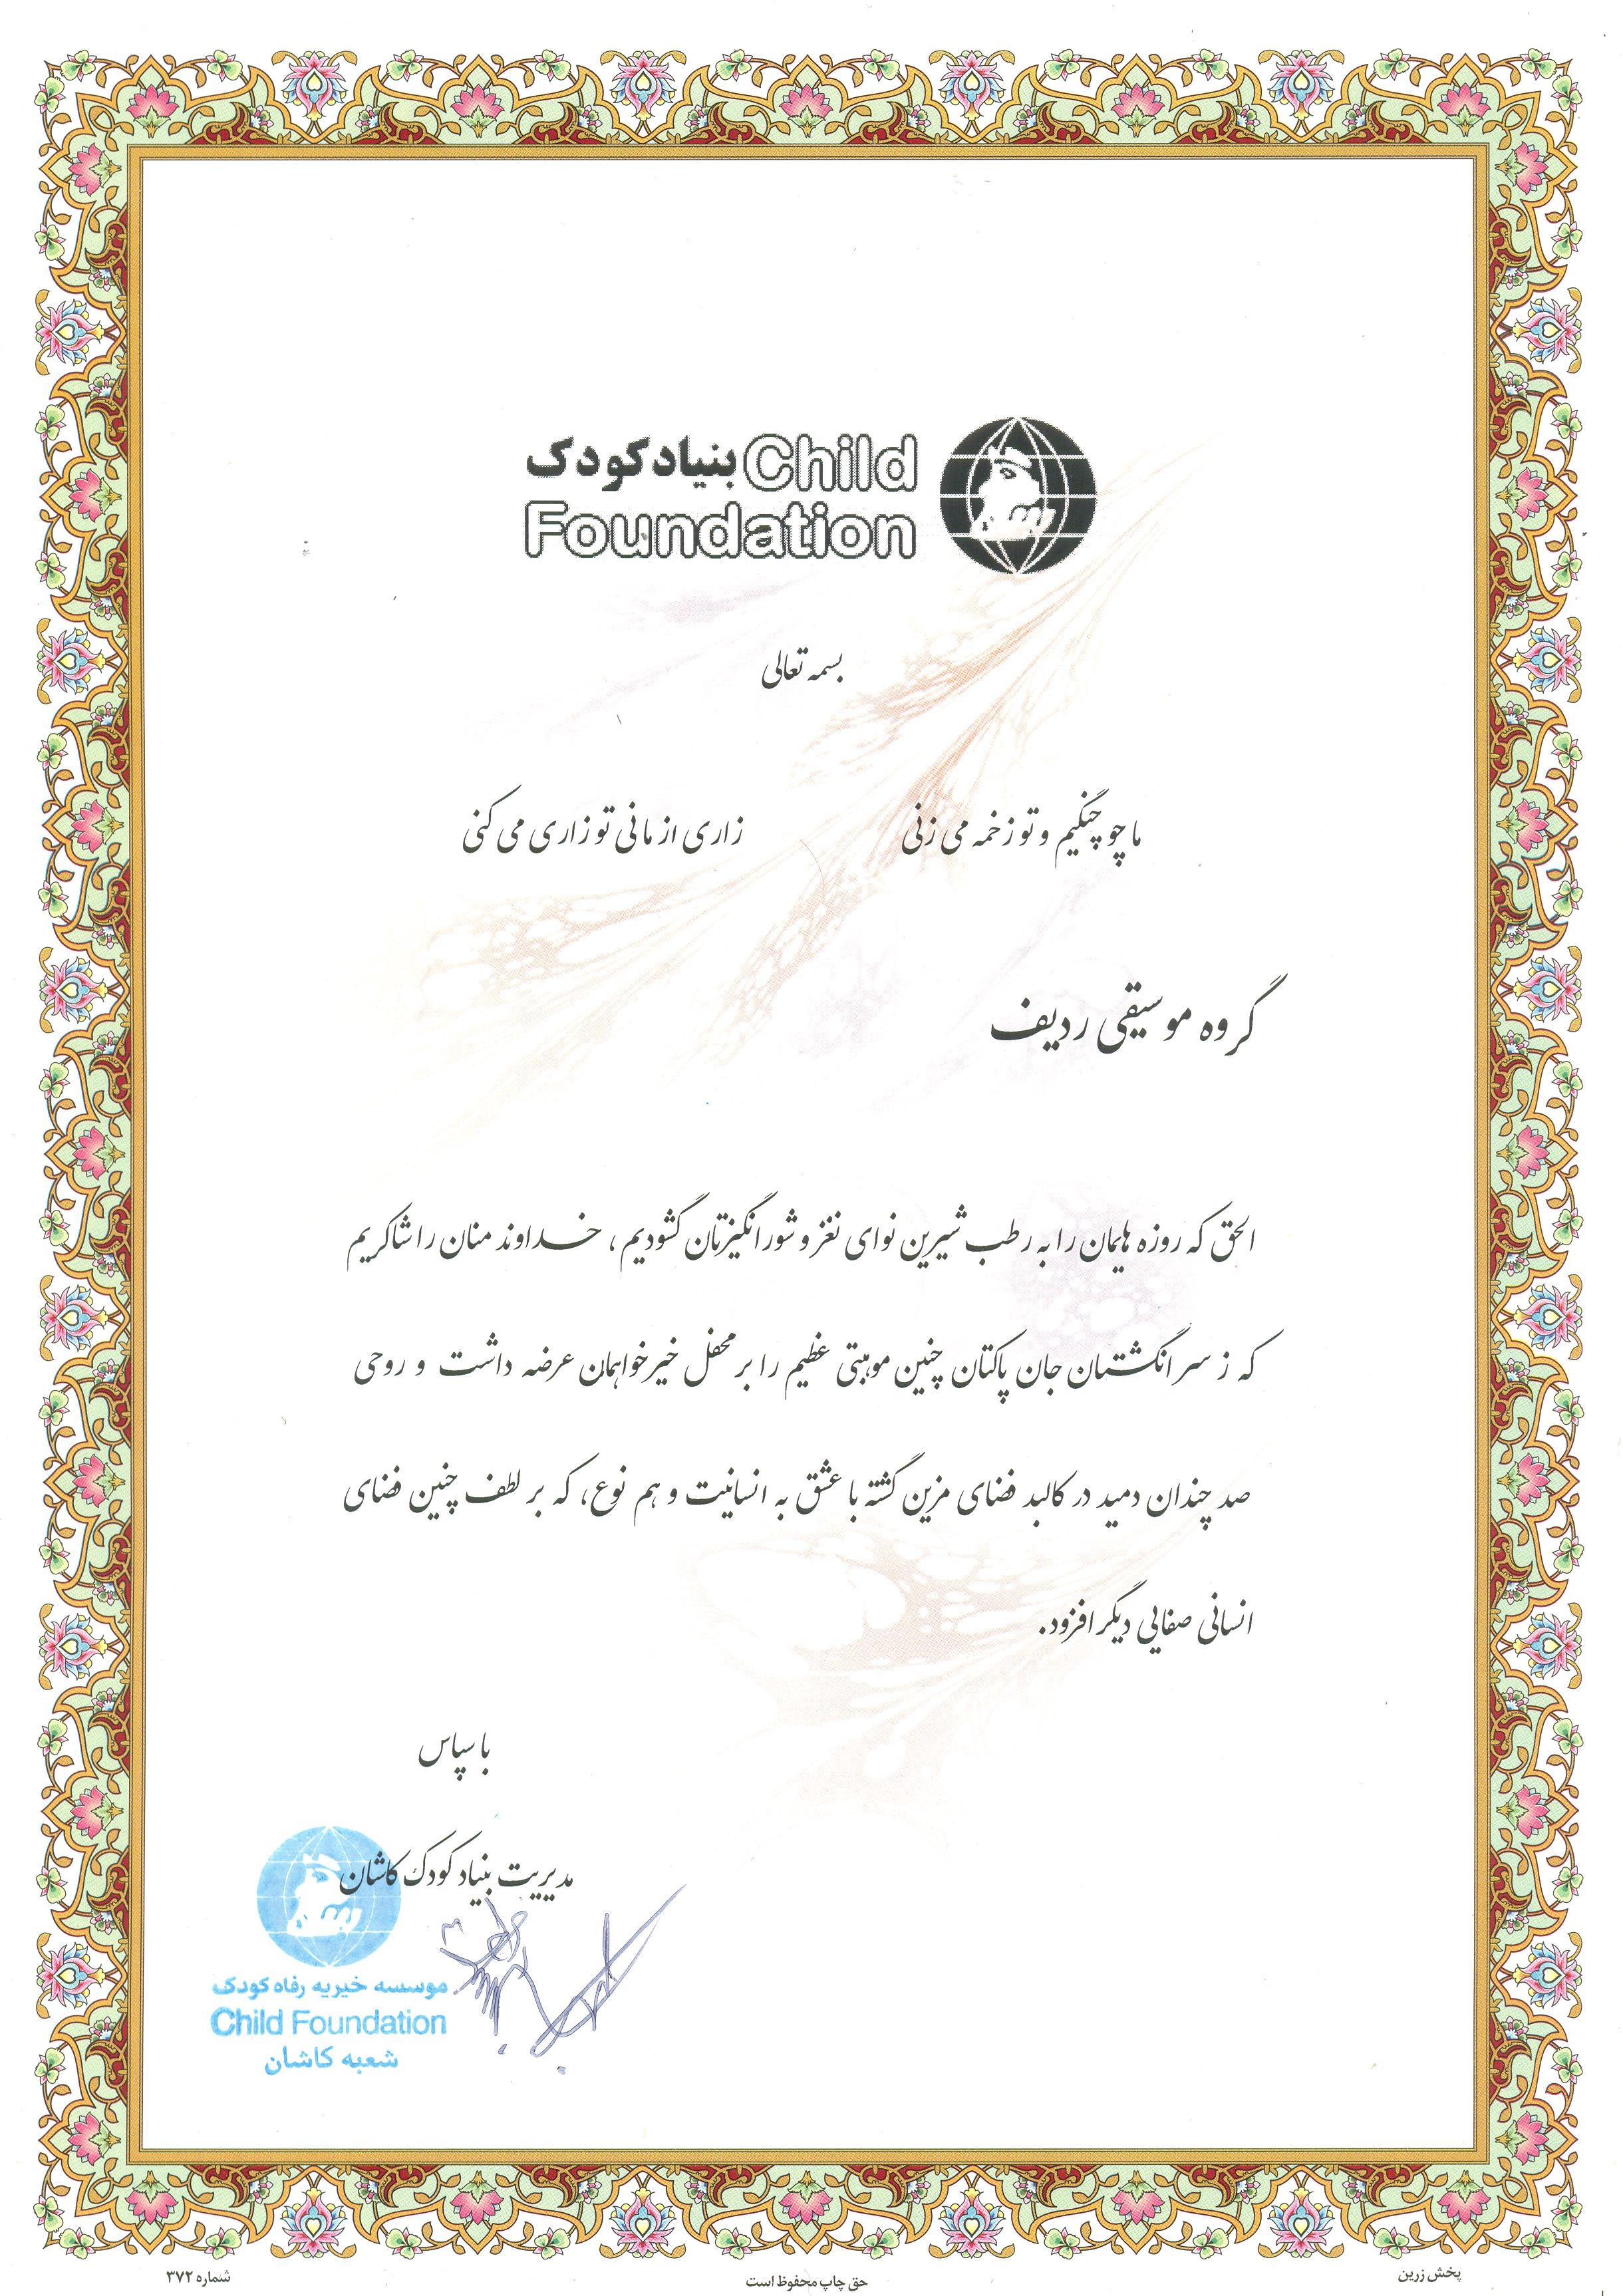 بنیاد کودک Child
Foundation
بسمه تعالی
ما چو چنگیم و تو زخمه می زنی زاری از ما نی تو زاری می کنی
گروه موسیقی ردیف
الحق که روزه هایمان را به رطب شیرین نوای نغز و شورانگیزتان گشودیم، خداوند منان را شاکریم
که ز سر انگشتمان جان پاکتان چنین موهبتی عظیم را بر محفل خیرخواهمان عرضه داشت و روحی
صد چندان دمید در کالبد فضای مزین گشته با عشق به انسانیت و هم نوع، که بر لطف چنین فضای
انسانی صفایی دیگر افزود.
با سپاس
مدیریت بنیاد کودک کاشان
موسسه خیریه رفاه کودک
Child Foundation
شعبه کاشان
پخش زرین
حق چاپ محفوظ است
شماره ۳۷۲